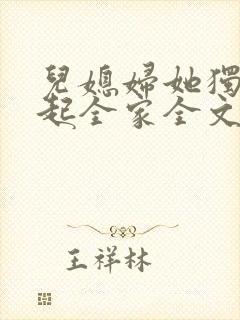 兒媳婦她獨
起全家全文
王祥林